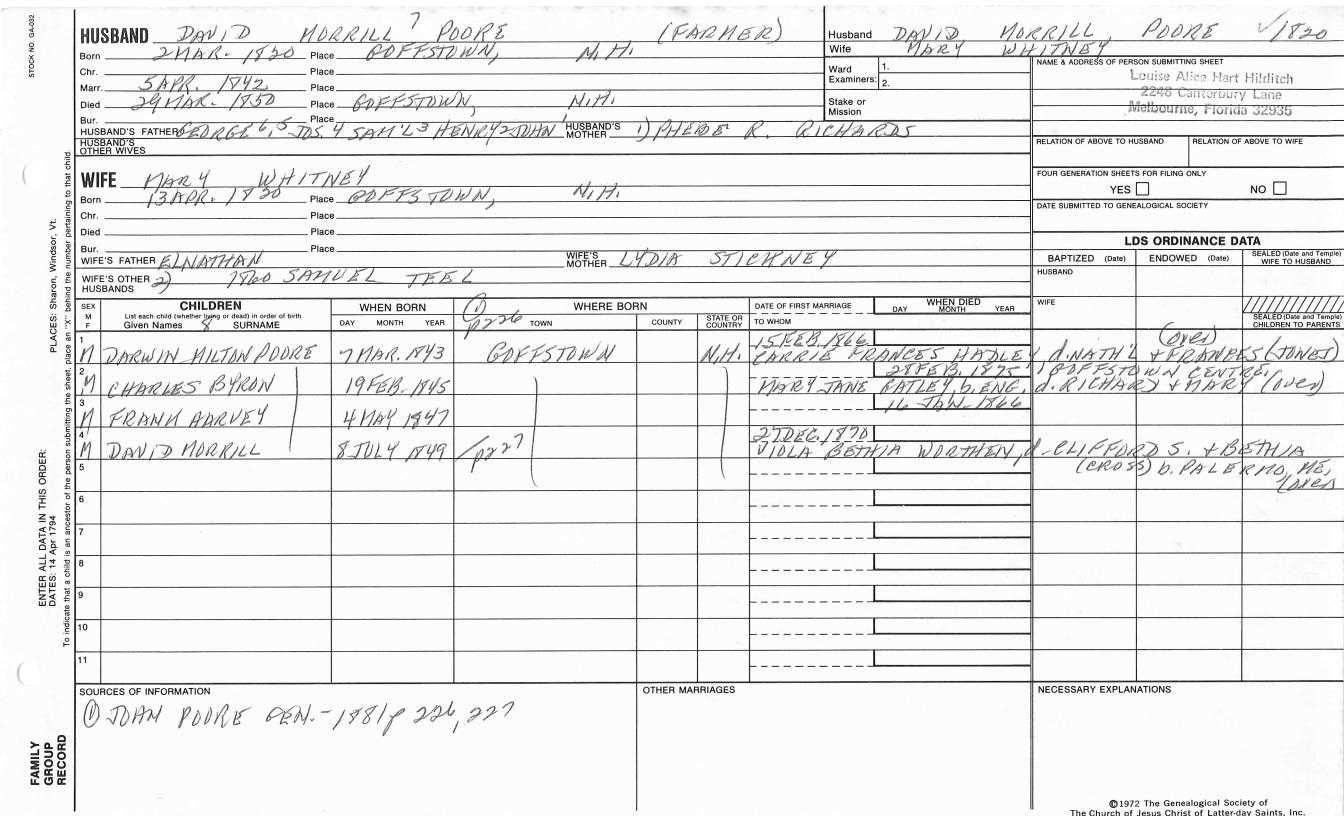 STOCK NO. GA-032
HUSBAND DAVID MORRILL 7 POORE (FARMER)
Born 2 MAR. 1820 Place GOFFSTOWN, N.H.
Chr. Place
Marr. 5 APR. 1842 Place
Died 29 MAR. 1850 Place GOFFSTOWN, N.H.
Bur. Place
HUSBAND'S FATHER GEORGE 6, 5 JOS. 4 SAM'L 3 HENRY 2 JOHN 1 HUSBAND'S MOTHER 1) PHEBE R. RICHARDS
HUSBAND'S OTHER WIVES
Husband DAVID MORRILL POORE ✓1820
Wife MARY WHITNEY
Ward Examiners: 1. 2.
Stake or Mission
NAME & ADDRESS OF PERSON SUBMITTING SHEET
Louise Alice Hart Hilditch
2246 Canterbury Lane
Melbourne, Florida 32935
RELATION OF ABOVE TO HUSBAND RELATION OF ABOVE TO WIFE
FOUR GENERATION SHEETS FOR FILING ONLY
YES NO
DATE SUBMITTED TO GENEALOGICAL SOCIETY
WIFE MARY WHITNEY
Born 13 APR. 1820 Place GOFFSTOWN, N.H.
Chr. Place
Died Place
Bur. Place
WIFE'S FATHER ELNATHAN WIFE'S MOTHER LYDIA STICKNEY
WIFE'S OTHER HUSBANDS 2) 1860 SAMUEL TEEL
LDS ORDINANCE DATA
BAPTIZED (Date) ENDOWED (Date) SEALED (Date and Temple) WIFE TO HUSBAND
HUSBAND
WIFE
SEALED (Date and Temple) CHILDREN TO PARENTS
SEX M F CHILDREN WHEN BORN WHERE BORN DATE OF FIRST MARRIAGE WHEN DIED
List each child (whether living or dead) in order of birth
Given Names 8 SURNAME DAY MONTH YEAR (1) p226 TOWN COUNTY STATE OR COUNTRY TO WHOM DAY MONTH YEAR
1 M DARWIN MILTON POORE 7 MAR. 1843 GOFFSTOWN N.H. 15 FEB. 1866 CARRIE FRANCES HADLEY d. NATH'L & FRANCES (JONES) (over)
2 M CHARLES BYRON 19 FEB. 1845 28 FEB. 1875 GOFFSTOWN CENTRE, MARY JANE BATLEY, b. ENG. d. RICHARD & MARY (over)
3 M FRANK HARVEY 4 MAY 1847 16 JAN. 1866
4 M DAVID MORRILL 8 JULY 1849 /p227 27 DEC. 1870 VIOLA BETHIA WORTHEN, d. CLIFFORD S. & BETHIA
5 (CROSS) b. PALERMO, ME, (over)
6
7
8
9
10
11
SOURCES OF INFORMATION OTHER MARRIAGES NECESSARY EXPLANATIONS
(1) JOHN POORE GEN. - 1881 p 226, 227
©1972 The Genealogical Society of
The Church of Jesus Christ of Latter-day Saints, Inc.
FAMILY GROUP RECORD
ENTER ALL DATA IN THIS ORDER:
DATES: 14 Apr 1794
PLACES: Sharon, Windsor, Vt.
To indicate that a child is an ancestor of the person submitting the sheet, place an "X" behind the number pertaining to that child.